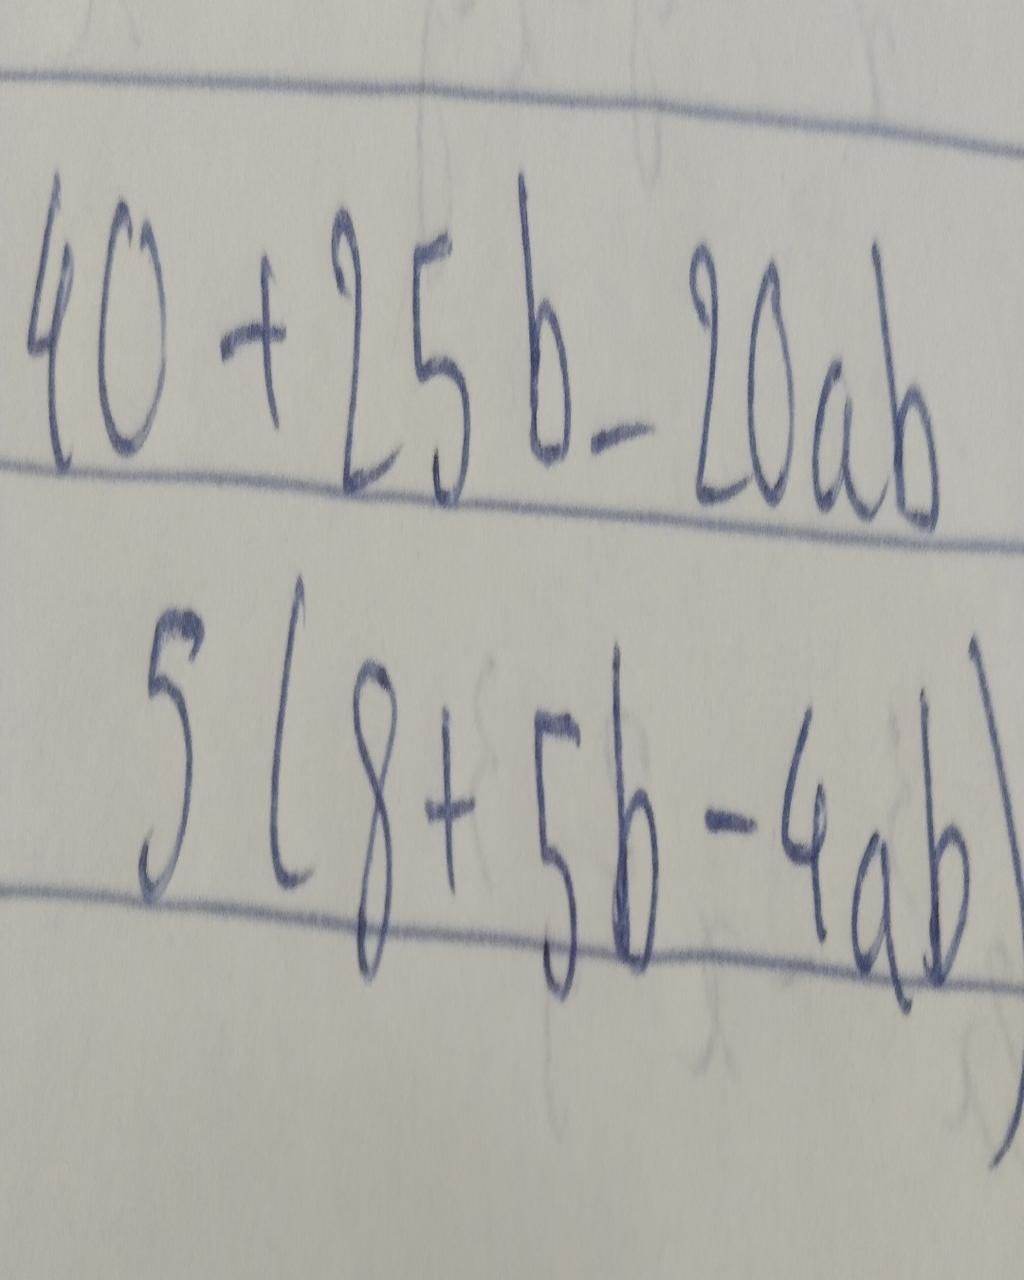 40 + 25b - 20ab
5(8 + 5b - 4ab)